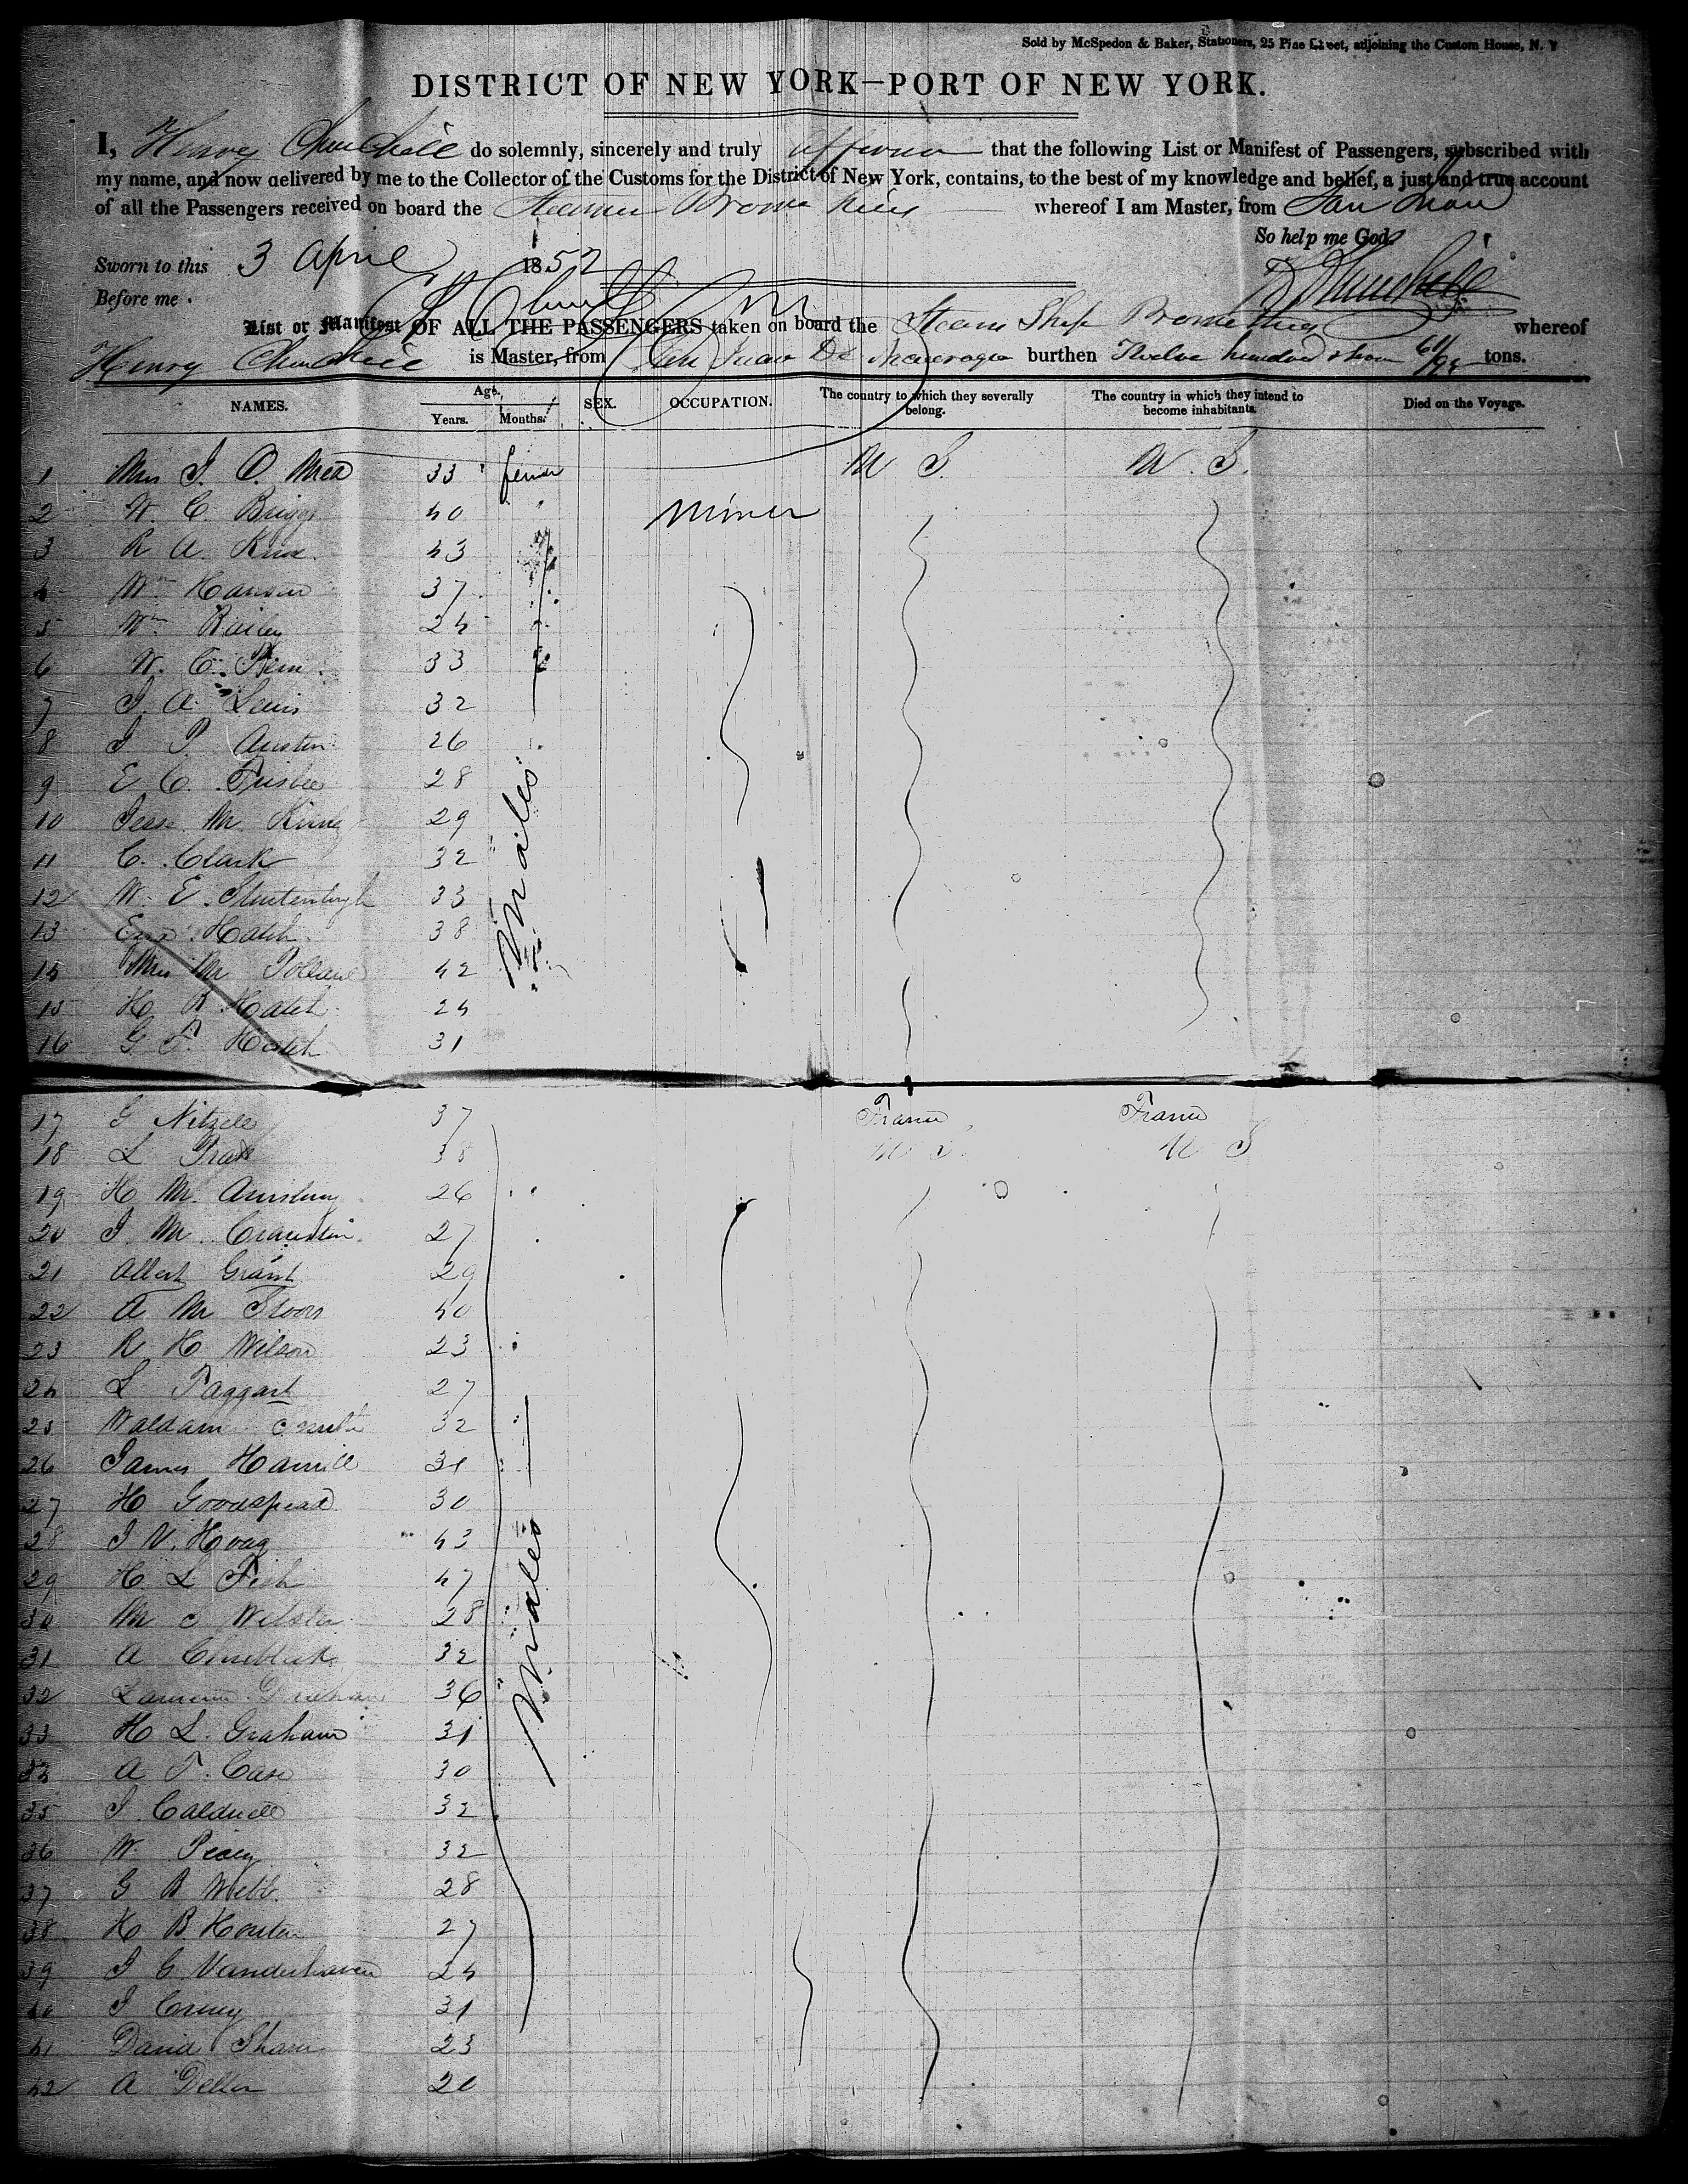 Sold by McSpedon & Baker, Stationers, 25 Pine Street, adjoining the Custom House, N. Y
DISTRICT OF NEW YORK—PORT OF NEW YORK.
I, Henry Churchill do solemnly, sincerely and truly affirm that the following List or Manifest of Passengers, subscribed with
my name, and now delivered by me to the Collector of the Customs for the District of New York, contains, to the best of my knowledge and belief, a just and true account
of all the Passengers received on board the Steamer Prometheus whereof I am Master, from San Juan
So help me God.
Sworn to this 3 April 1852
Before me
H Churchill
List or Manifest OF ALL THE PASSENGERS taken on board the Steam Ship Prometheus whereof
Henry Churchill is Master, from San Juan De Nicaragua burthen Twelve hundred & seven 61/95 tons.
NAMES. Age, Years. Months. SEX. OCCUPATION. The country to which they severally belong. The country in which they intend to become inhabitants. Died on the Voyage.
1 Mrs J. O. Mead 33 U S. U. S.
2 W. C. Briggs 40 " Miner
3 R A. 43
4 Wm Hanson 37
5 Wm Bailey 24
6 W. C. 33
7 J. A. Lewis 32
8 J P Austin 26
9 E C. Frisbee 28
10 Jesse M King 29
11 C. Clark 32
12 W. E. Stoutenburgh 33
13 Hatch 38
14 Mrs M 42
15 H B Hatch 24
16 G F Hatch 31
Males
17 G Nitzell 37 France France
18 L Pratt 38 U S. U S
19 H M. Amsbury 26
20 J M. Cranston 27
21 Albert Grant 29
22 A M 40
23 R H Wilson 23
24 L Taggart 27
25 Waldam Smith 32
26 James Hamill 31
27 H Goodspeed 30
28 J V. Hoag 43
29 H. L Fish 47
30 M C Webster 28
31 A 32
32 36
33 H L. Graham 31
34 A T. Case 30
35 J Caldwell 32
36 W. 32
37 G B Webb. 28
38 H B. Horton 27
39 J C Vanderhaven 24
40 J 31
41 David Shaw 23
42 A 20
Males